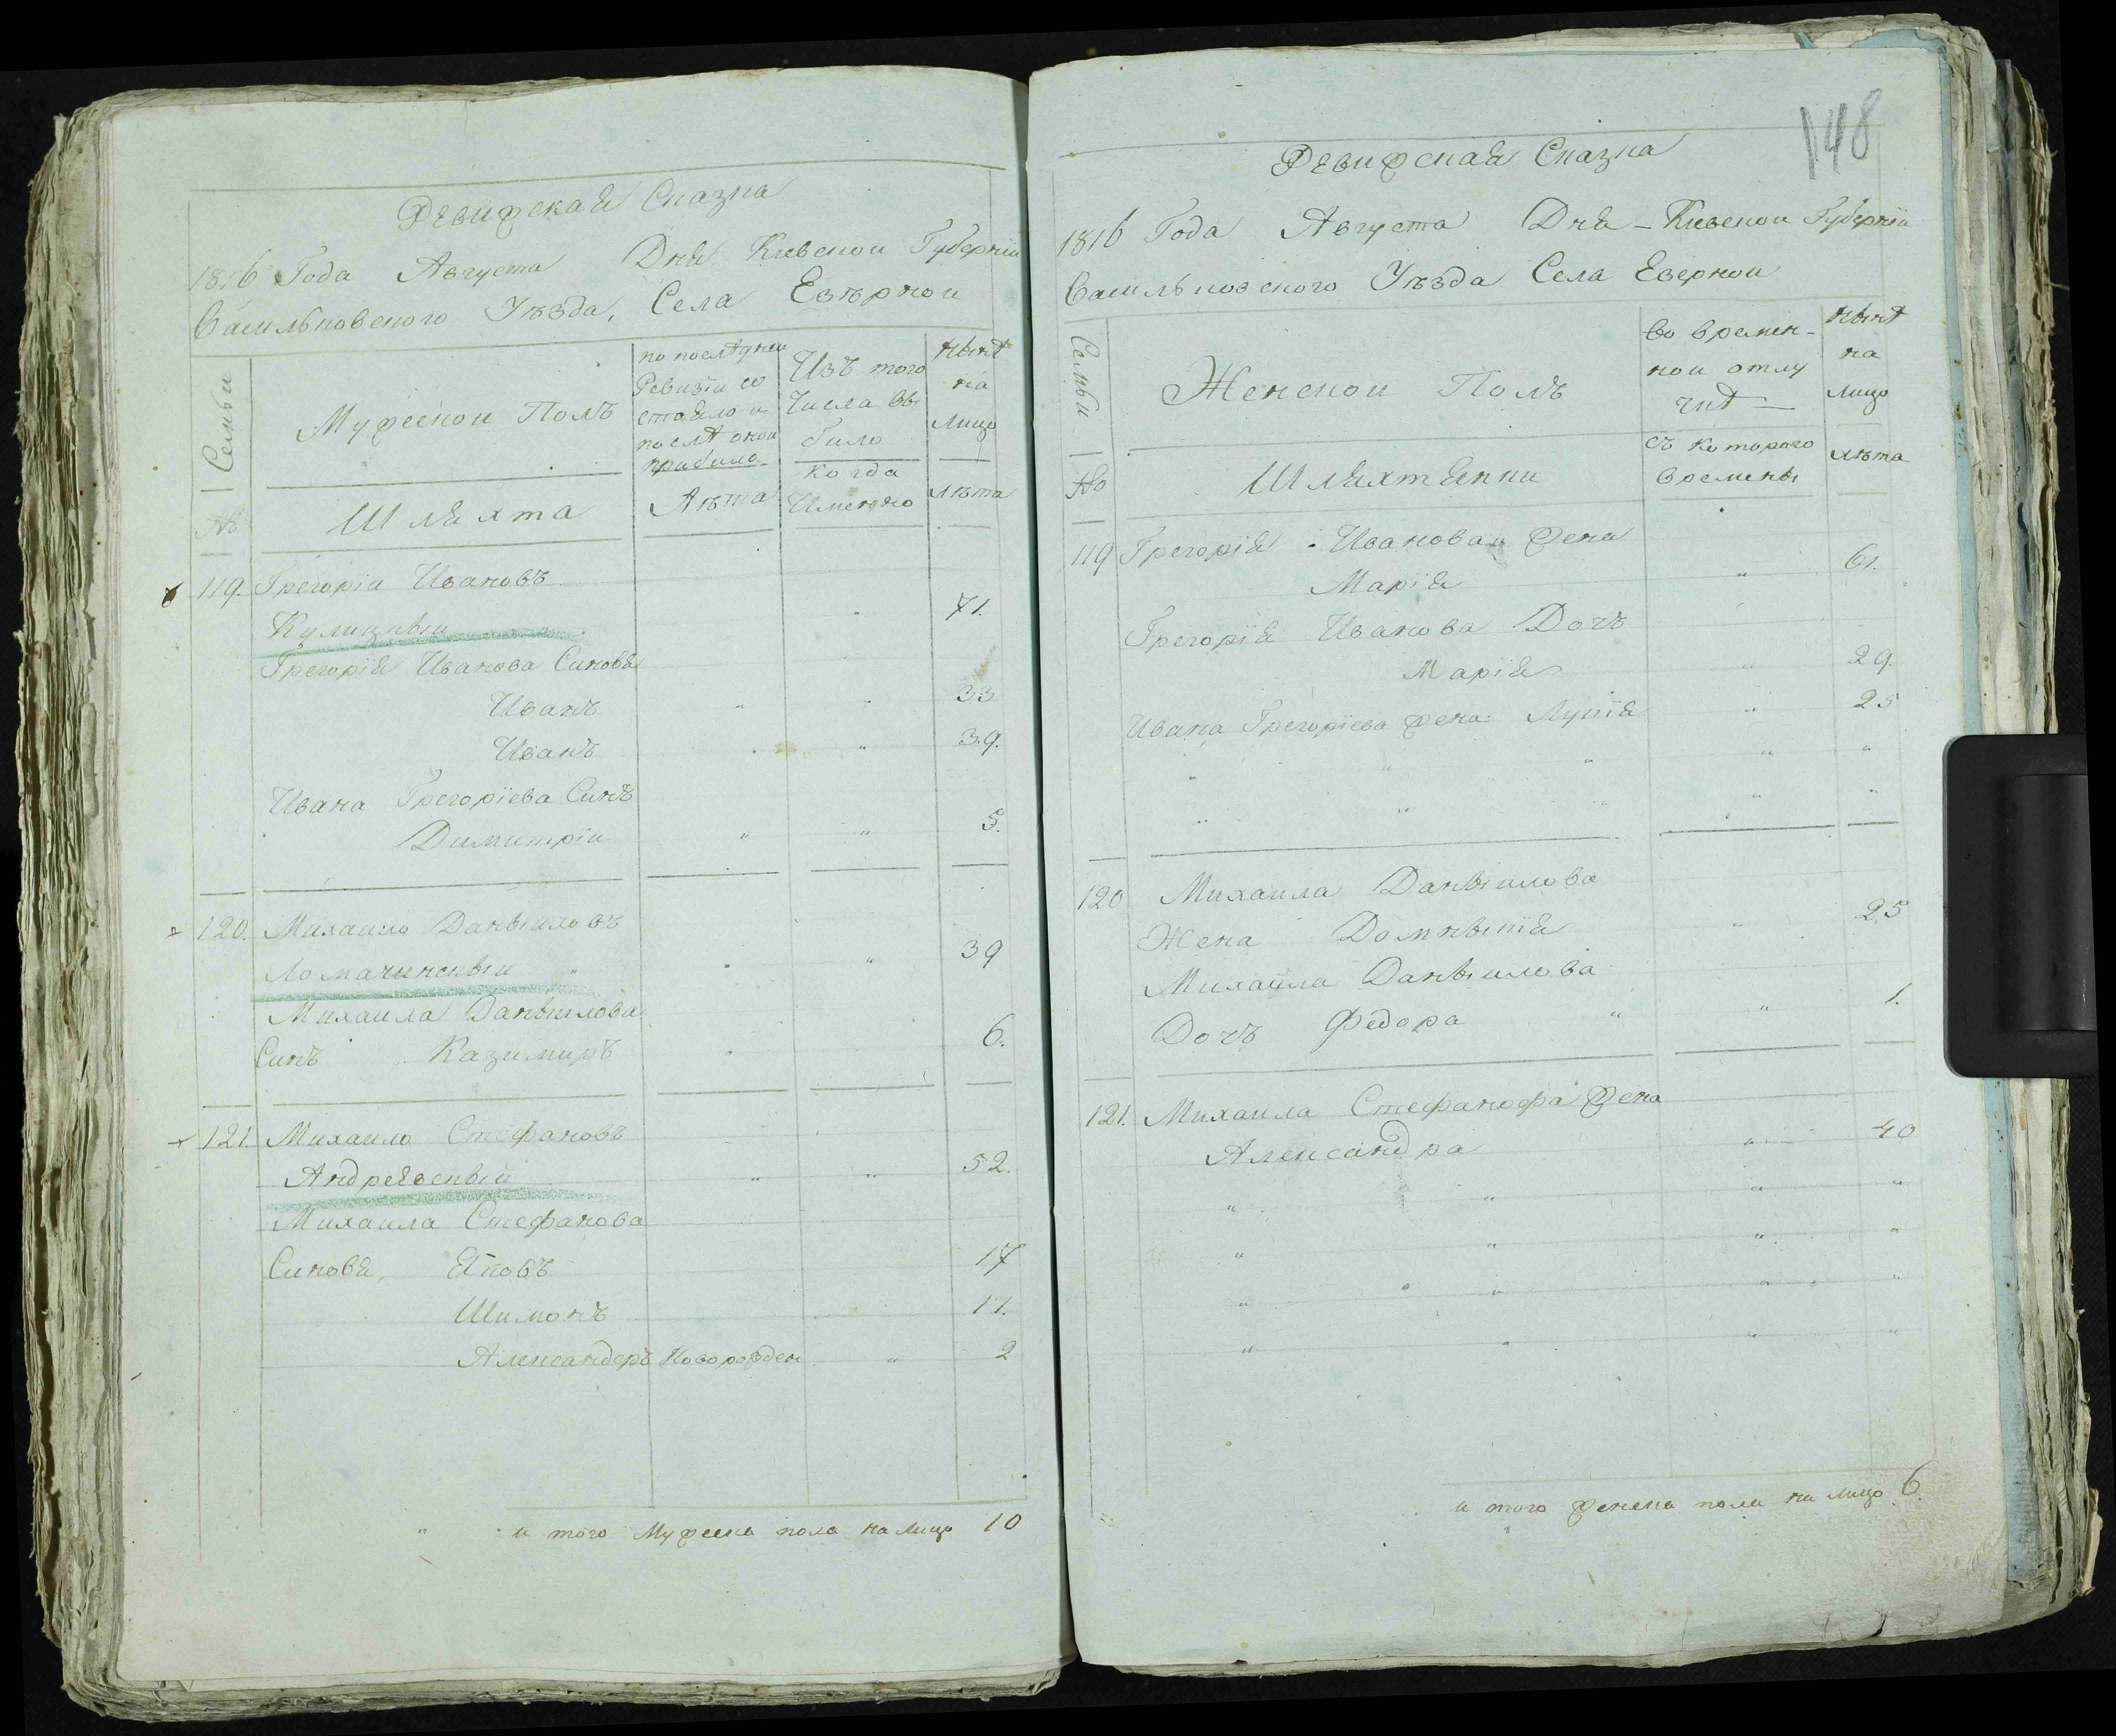 Ревижская Сказка
1816 Года Августа Дня Киевскои Губернїи
Васильковского Уѣзда, Села Езѣрнои
Семьи
Мужескои Полъ
по послѣднеи
Ревизїи со
стояло и
послѣ онои
прибило
Изъ того
Числа вы
било
нынѣ
на
лицо
№
Шляхта
Лѣта
когда
Именно
лѣта
119. Грегорїи Ивановъ
71.
Грегорїя Иванова Синовя
Иванъ " " 33
Иванъ " " 39.
Ивана Грегорїева Синъ
Димитрїи " " 5.
120. Михаило Даныиловъ
Ломачинскыи " " " 39
Михаила Даныилова
Синъ Казимиръ " 6.
121 Михаило Стефановъ
Андреевскыи " " 52.
Михаила Стефанова
Синовя, Яковъ 17
Шимонъ 11.
Александеръ Новорожден " 2
" и того Мужеска пола на лицо 10
148
Ревижская Сказка
1816 Года Августа Дня - Киевскои Губернїи
Васильковского Уѣзда Села Езернои
Семьи
Женскои Полъ
во времен-
нои отлу
чкѣ
нынѣ
на
лицо
№
Шляхтянки
съ которого
времены
лѣта
119 Грегорїя Иванова жена
Марїя " 61.
Грегорїя Иванова Дочъ
Марїя " 29.
Ивана Грегорїева жена: Лукїя " 25
" " " " "
" " " " "
120 Михаила Даныилова
Жена Домныкїя " 25
Михаила Даныилова
Дочъ Федора " " 1.
121. Михаила Стефанофа жена
Александра " 40
" " " "
" " " "
" " " "
" " " "
и того женска пола на лицо 6.